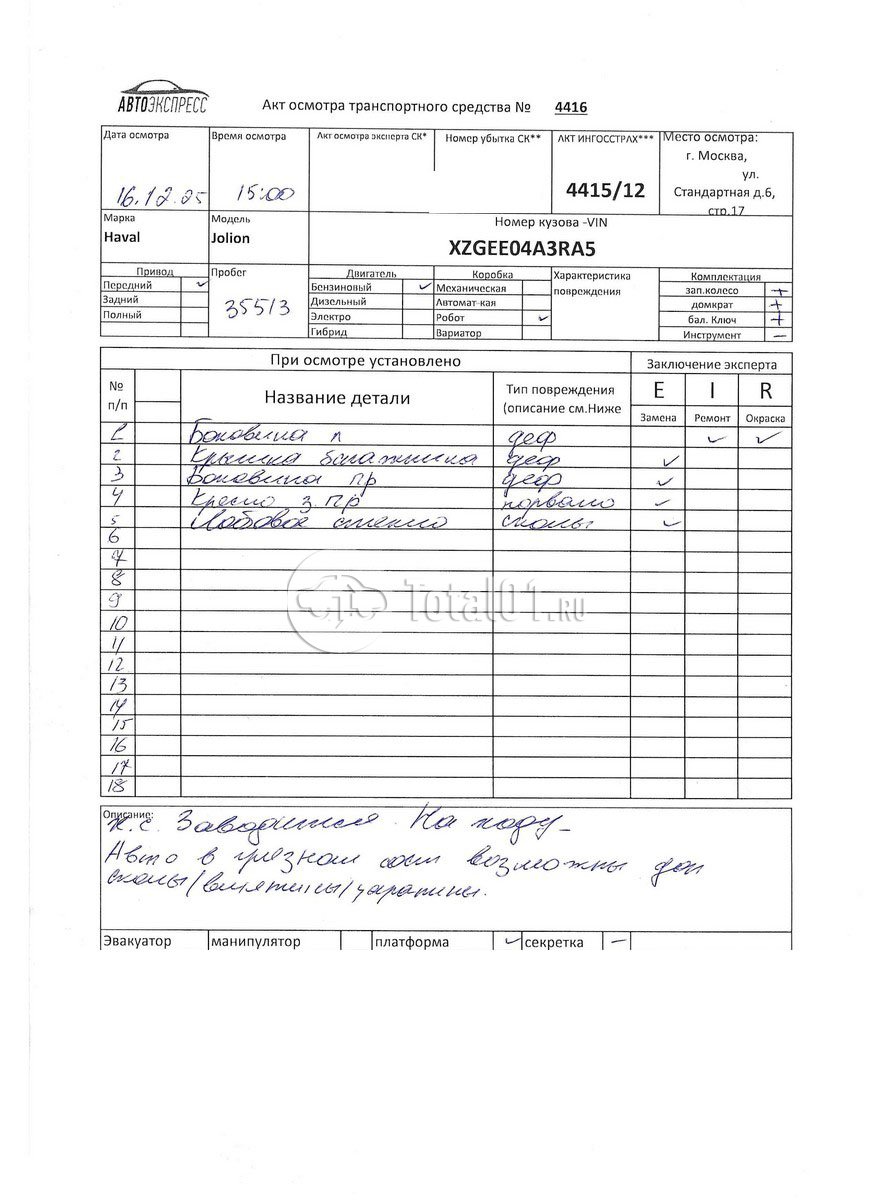 АВТОЭКСПРЕСС
Акт осмотра транспортного средства № 4416
Дата осмотра Время осмотра Акт осмотра эксперта СК* Номер убытка СК** АКТ ИНГОССТРАХ*** Место осмотра:
г. Москва,
ул.
16.12.25 15:00 4415/12 Стандартная д.6,
стр.17
Марка Модель Номер кузова -VIN
Haval Jolion XZGEE04A3RA5
Привод Пробег Двигатель Коробка Характеристика повреждения Комплектация
Передний ✓ 35513 Бензиновый ✓ Механическая зап.колесо +
Задний Дизельный Автомат-кая домкрат +
Полный Электро Робот ✓ бал. Ключ +
Гибрид Вариатор Инструмент —
При осмотре установлено Заключение эксперта
№ п/п Название детали Тип повреждения (описание см.Ниже E I R
Замена Ремонт Окраска
1 Боковина л деф ✓ ✓
2 Крышка багажника деф ✓
3 Боковина пр деф ✓
4 Кресло з. пр порвано ✓
5 Лобовое стекло сколы ✓
6
7
8
9
10
11
12
13
14
15
16
17
18
Total01.RU
Описание:
Заводится На ходу
Авто в грязном сост возможны доп
сколы/вмятины/царапины.
Эвакуатор манипулятор платформа ✓ секретка —